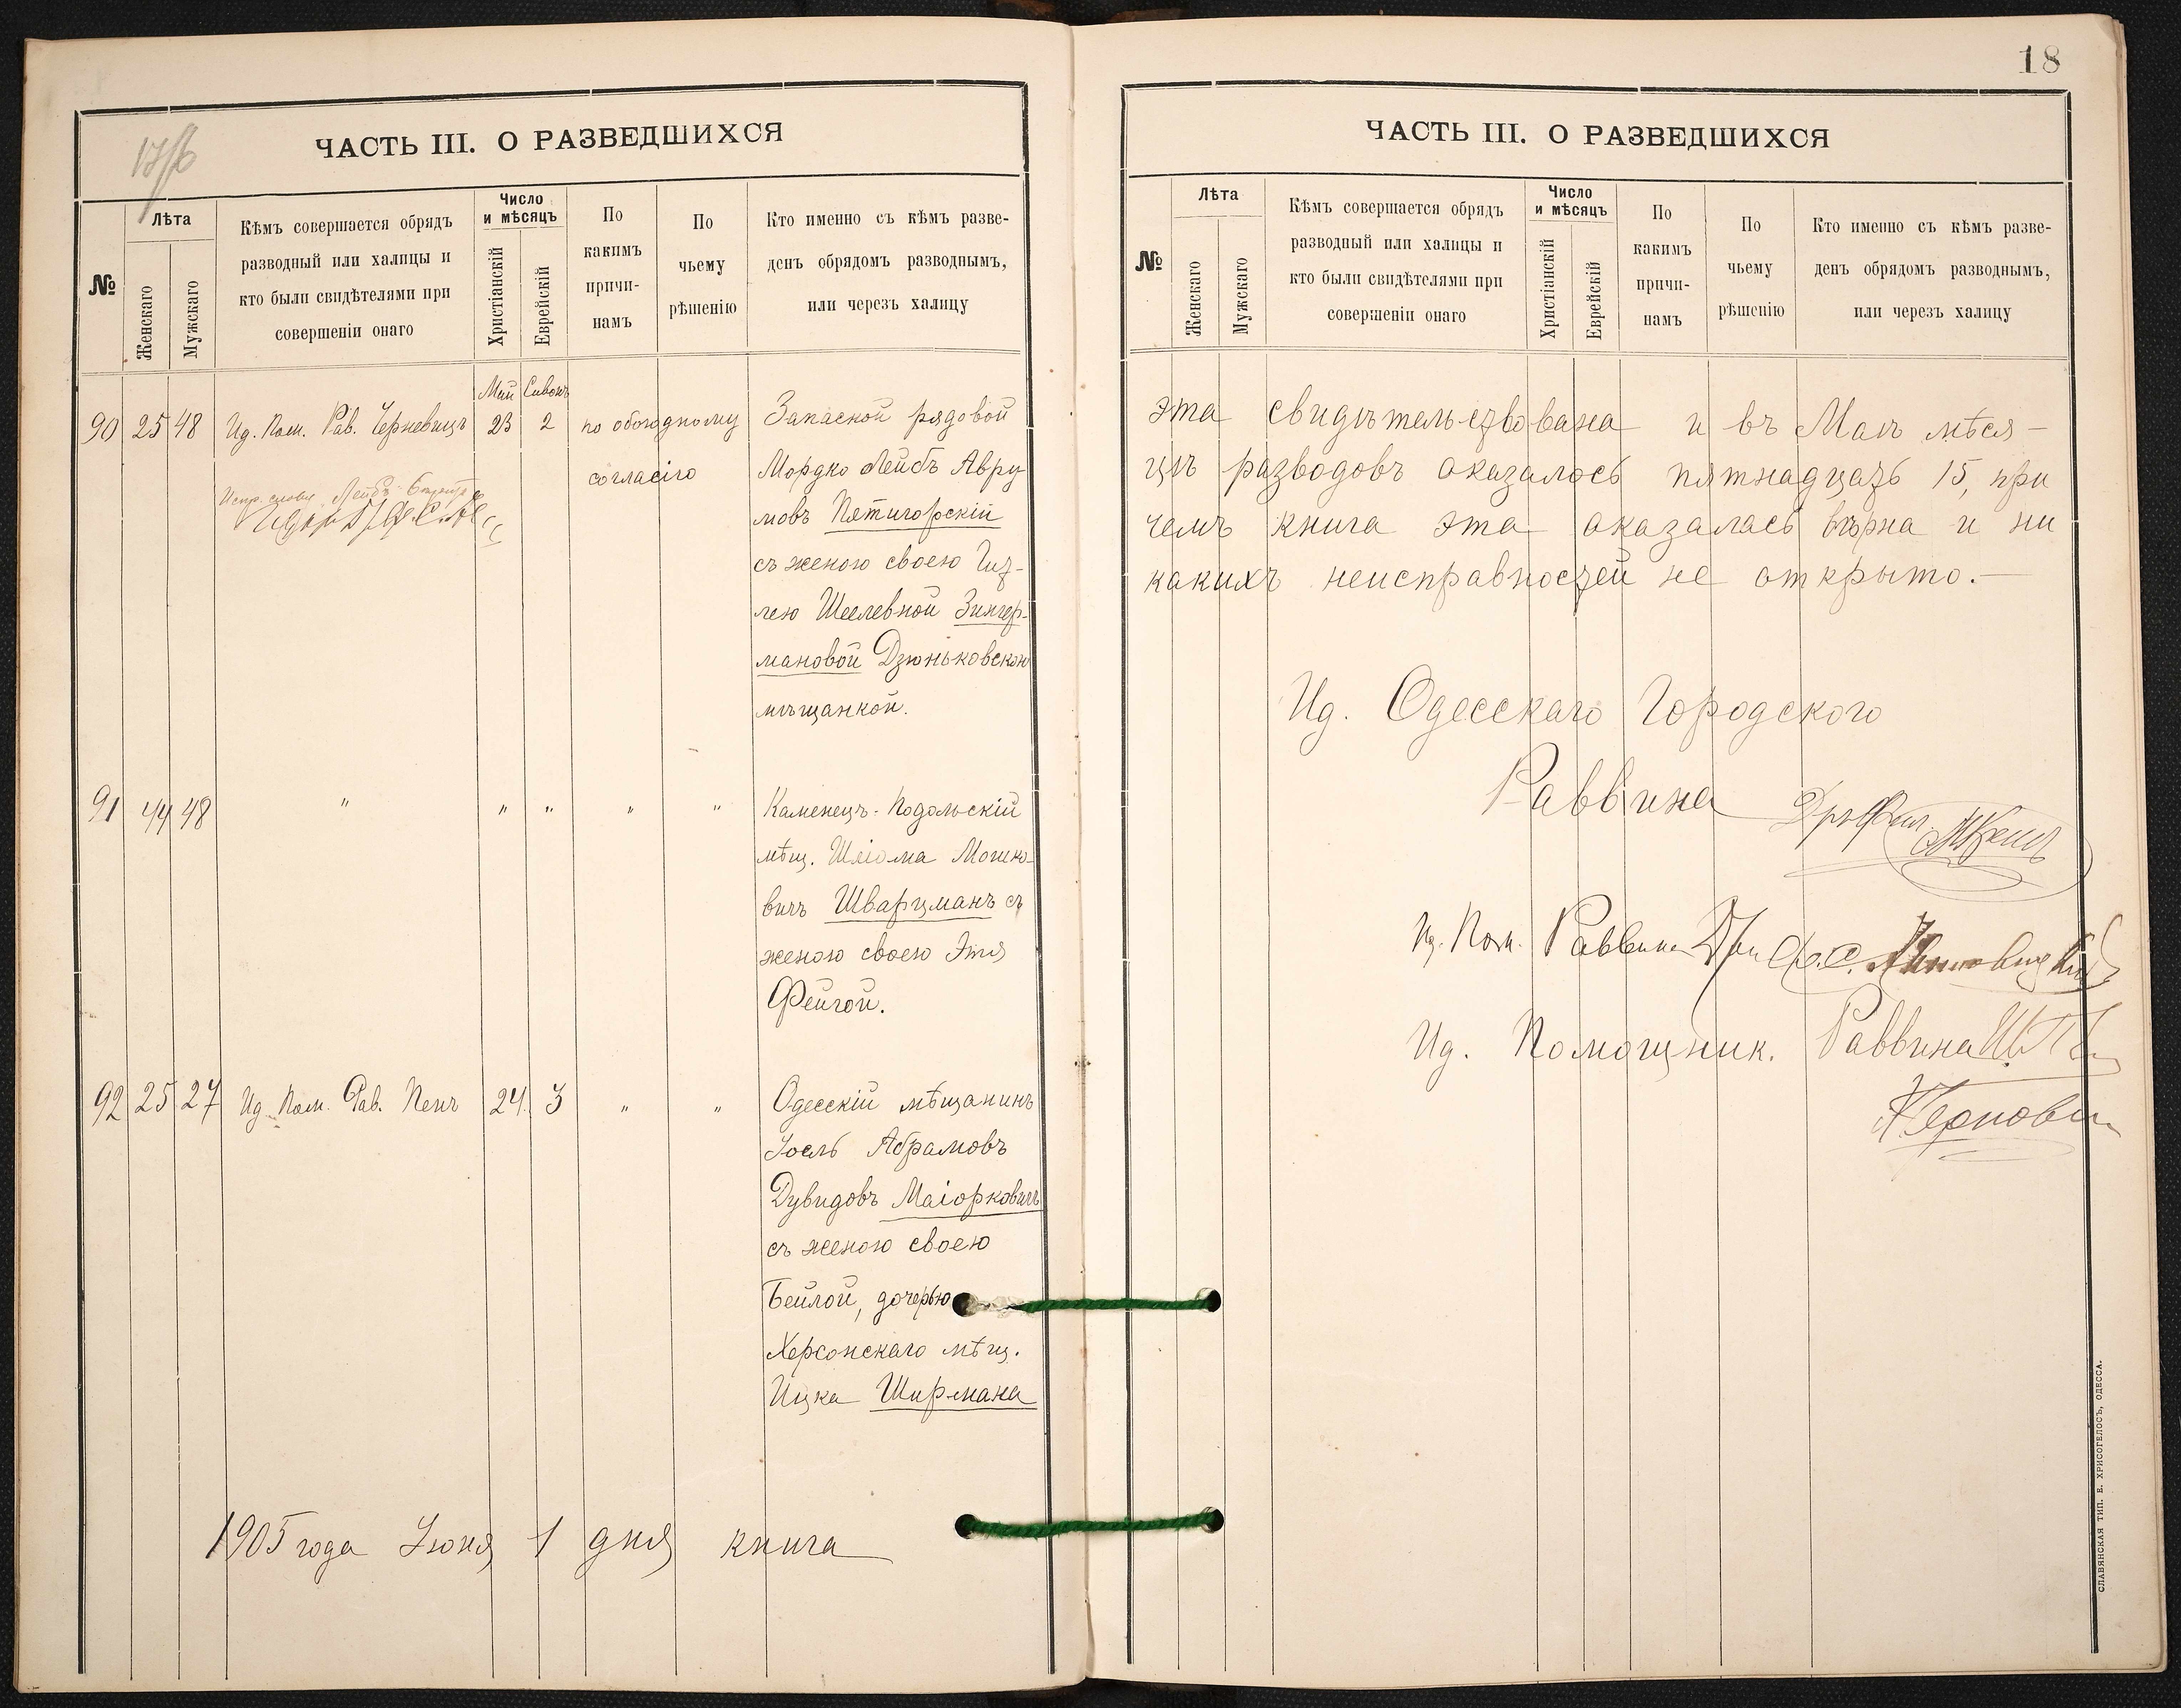 17/б
ЧАСТЬ III. О РАЗВЕДШИХСЯ
№
Лѣта
Женскаго
Мужскаго
Кѣмъ совершается обрядъ
разводный или халицы и
кто были свидѣтелями при
совершеніи онаго
Число
и мѣсяцъ
Христіанскій
Еврейскій
По
какимъ
причи-
намъ
По
чьему
рѣшенію
Кто именно съ кѣмъ разве-
денъ обрядомъ разводнымъ,
или черезъ халицу
Май Сивонъ
90 25 48 Ид. Пом. Рав. Черневицъ 23 2 по обоюдному Запаской рядовой
согласію Мордко Лейбъ Авру
Испр. слова „Лейбъ“
мовъ Пятигорскій
съ женою своею Гиз-
лею Шеелевной Зингер-
мановой Дзюньковской
мѣщанкой.
91 44 48 " " " " " Каменецъ-Подольскій
мѣщ. Шлiома Мошко-
вичъ Шварцманъ съ
женою своею Этя
Фейгой.
92 25 27 Ид. Пом. Рав. Пенъ 24 3 " " Одесскій мѣщанинъ
Іосль Абрамовъ
Дувидовъ Маіорковичъ
съ женою своею
Бейлой, дочерью
Херсонскаго мѣщ.
Ицка Ширмана
1905 года Іюня 1 дня книга
18
ЧАСТЬ III. О РАЗВЕДШИХСЯ
№
Лѣта
Женскаго
Мужскаго
Кѣмъ совершается обрядъ
разводный или халицы и
кто были свидѣтелями при
совершеніи онаго
Число
и мѣсяцъ
Христіанскій
Еврейскій
По
какимъ
причи-
намъ
По
чьему
рѣшенію
Кто именно съ кѣмъ разве-
денъ обрядомъ разводнымъ,
или черезъ халицу
эта свидѣтельствована и въ Маѣ мѣся-
цѣ разводовъ оказалось пятнадцать 15, при
чемъ книга эта оказалась вѣрна и ни
какихъ неисправностей не открыто.—
Ид. Одесскаго Городского
Раввина
Ид. Пом. Раввина
Ид. Помощник. Раввина
СЛАВЯНСКАЯ ТИП. Е. ХРИСОГЕЛОСЪ, ОДЕССА.